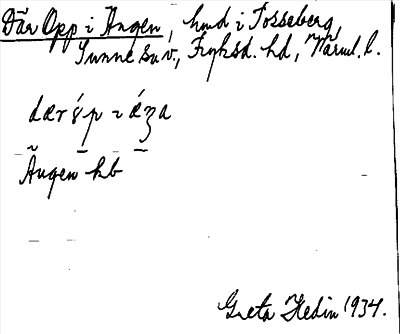 Där Opp i Ängen, hmd i Tosseberg,
Sunne sn v., Fryksd. hd, Värml. l.
Ängen hb
Greta Hedin 1934.